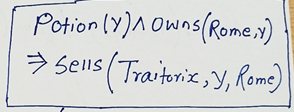 Potion(y) ∧ Owns(Rome,y)
⇒ Sells(Traitorix, y, Rome)